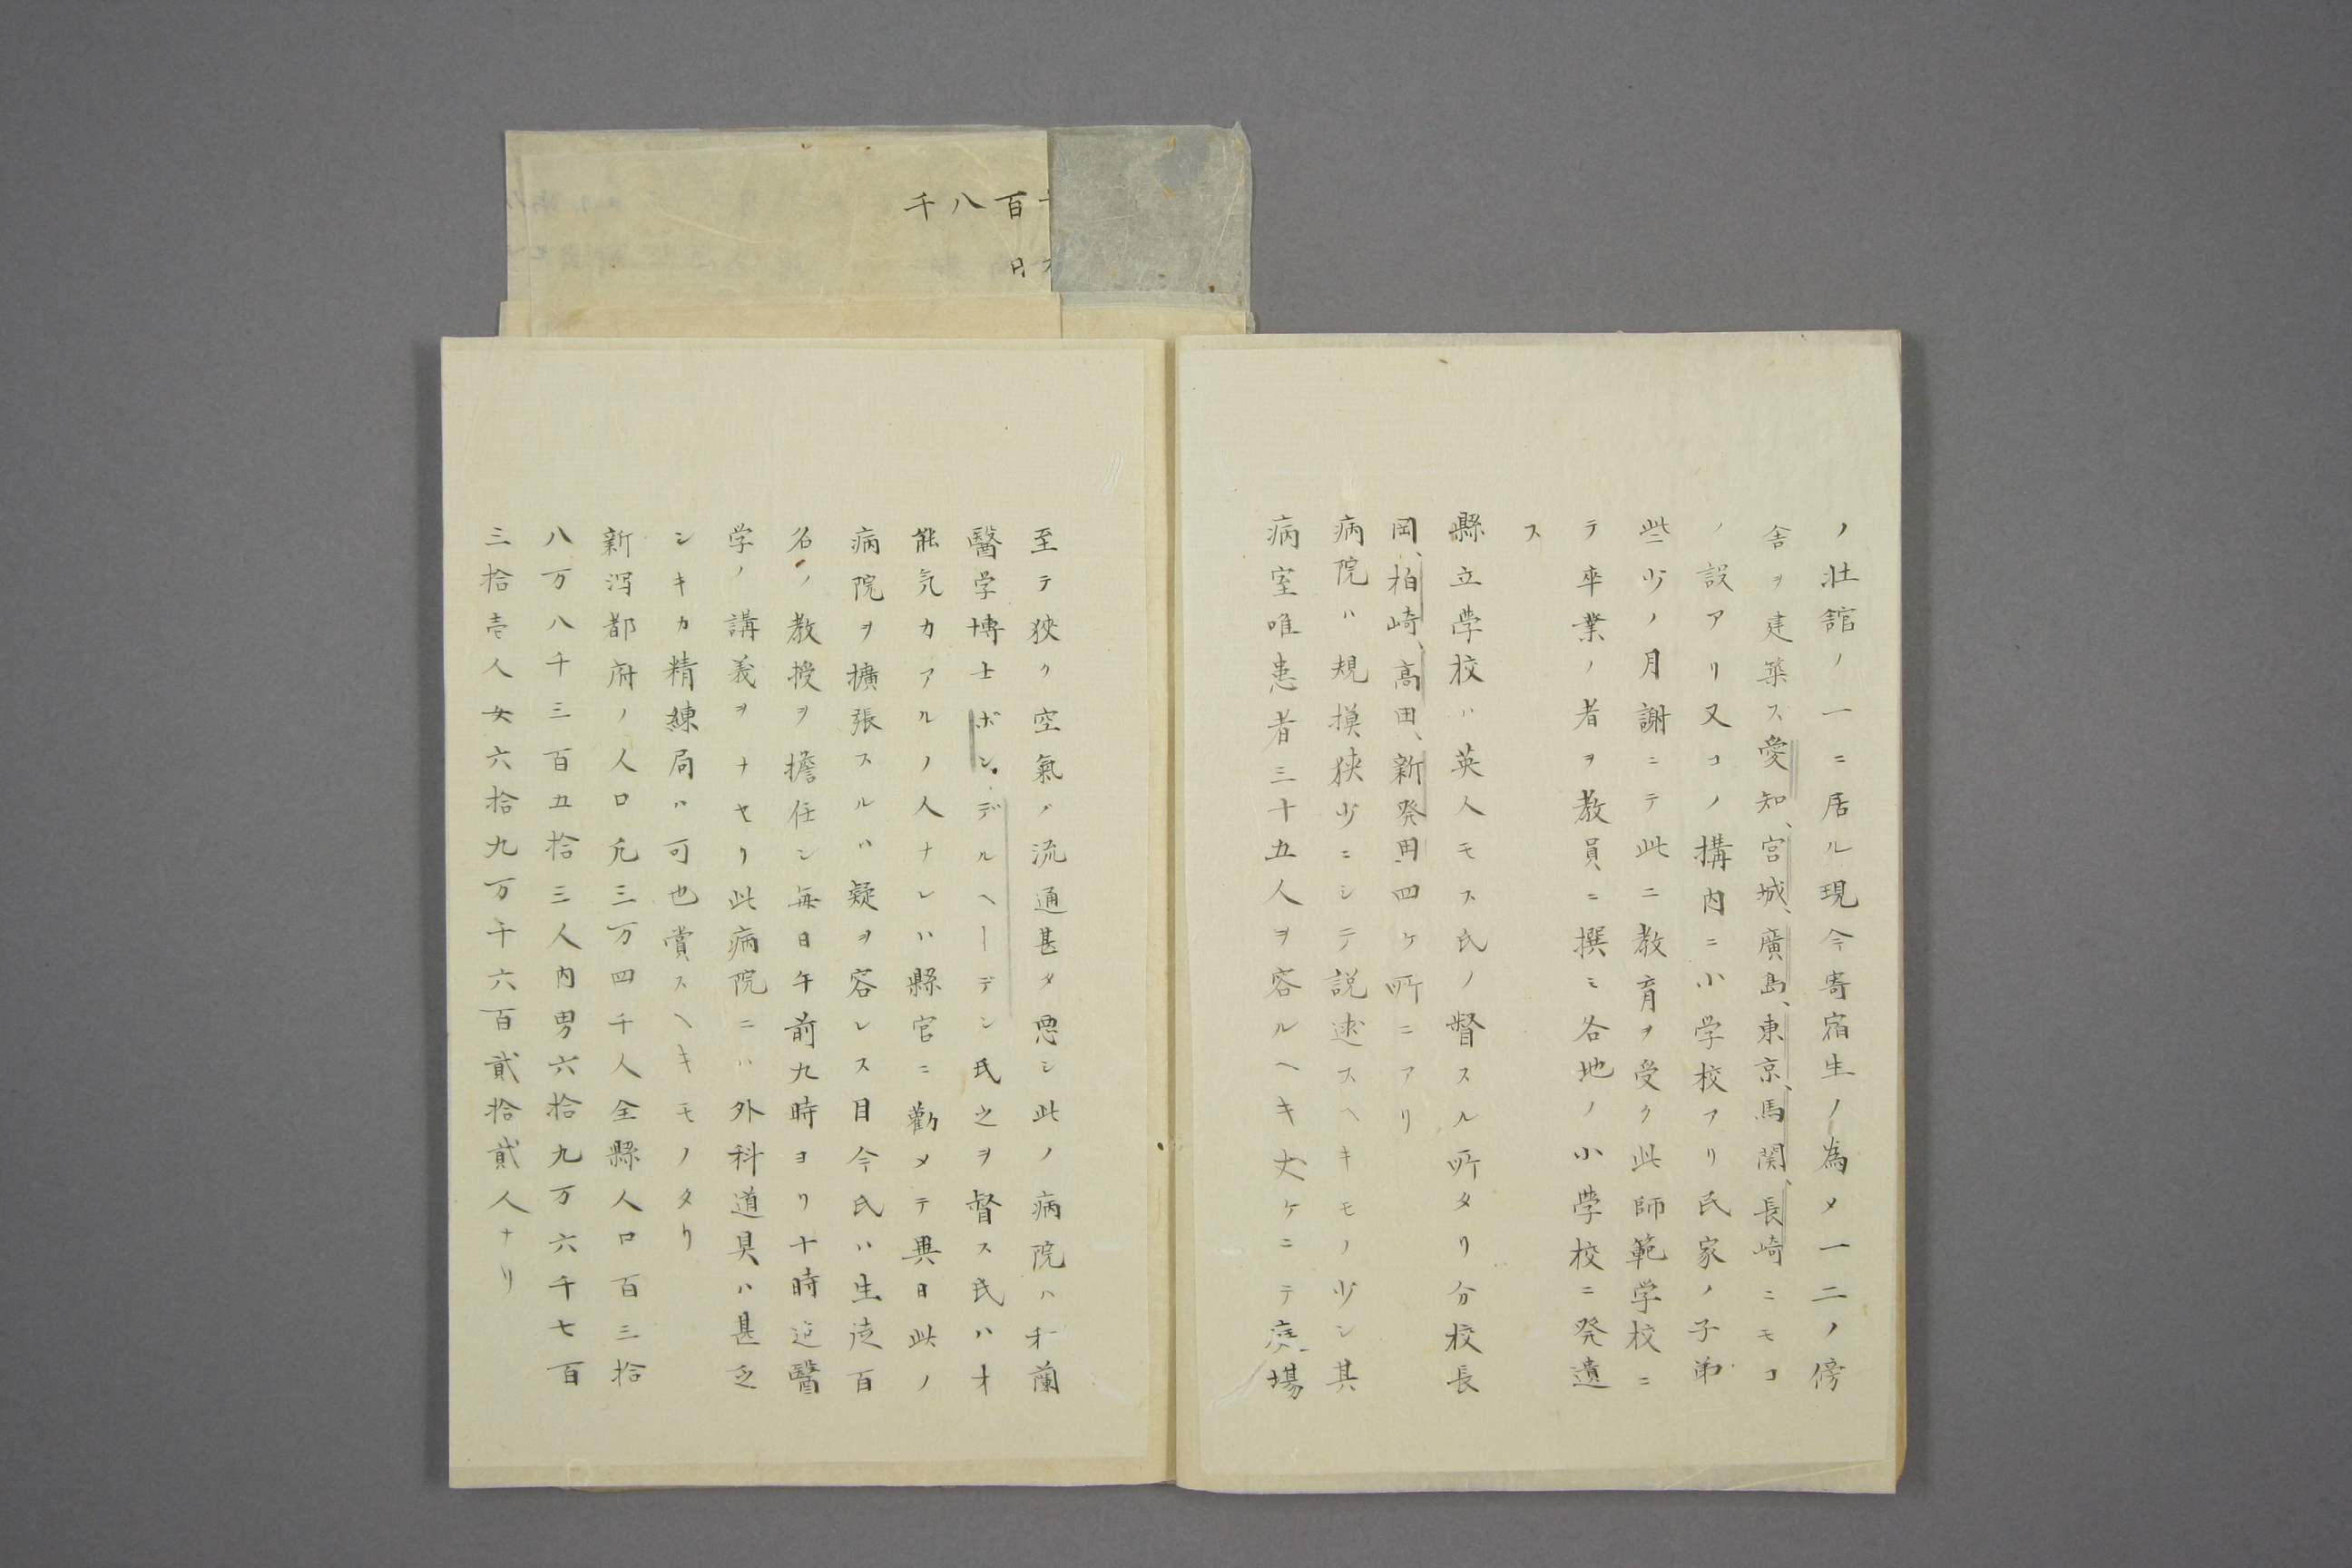 ノ壮舘ノ一ニ居ル現今寄宿生ノ為メ一二ノ傍
舎ヲ建築ス愛知、宮城、廣島、東京、馬関、長崎ニモコ
ノ設アリ又コノ構内ニ小学校アリ民家ノ子弟
些少ノ月謝ニテ此ニ教育ヲ受ク此師範学校ニ
テ卒業ノ者ヲ教員ニ撰ミ各地ノ小學校ニ発遣
ス
縣立學校ハ英人モス氏ノ督スル所タリ分校長
岡、柏崎、高田、新発田四ケ所ニアリ
病院ハ規摸狭少ニシテ説述スヘキモノ少シ其
病室唯患者三十五人ヲ容ルヘキ丈ケニテ場
至テ狹ク空氣ノ流通甚タ悪シ此ノ病院ハ和蘭
醫学博士ボン、デルヘーデン氏之ヲ督ス氏ハ才
能気力アルノ人ナレハ縣官ニ勸メテ異日此ノ
病院ヲ擴張スルハ疑ヲ容レス目今氏ハ生徒百
名ノ教授ヲ擔任シ毎日午前九時ヨリ十時迄醫
学ノ講義ヲナセリ此病院ニハ外科道具ハ甚乏
シキカ精練局ハ可也賞スヘキモノタリ
新潟都府ノ人口凡三万四千人全縣人口百三拾
八万八千三百五拾三人内男六拾九万六千七百
三拾壱人女六拾九万千六百貳拾貳人ナリ
百八千
日